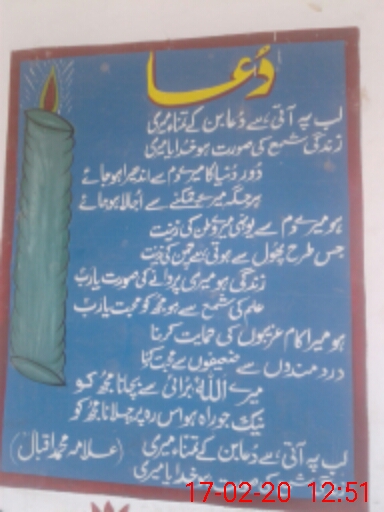 دُعا
لب پہ آتی ہے دُعا بن کے تمنا میری
زندگی شمع کی صورت ہو خدایا میری
دور دنیا کا میرے دم سے اندھیرا ہو جائے
ہر جگہ میرے چمکنے سے اُجالا ہو جائے
ہو میرے دم سے یونہی میرے وطن کی زینت
جس طرح پھول سے ہوتی ہے چمن کی زینت
زندگی ہو میری پروانے کی صورت یارب
علم کی شمع سے ہو مجھ کو محبت یارب
ہو میرا کام غریبوں کی حمایت کرنا
درد مندوں سے ضعیفوں سے محبت کرنا
میرے اللہ بُرائی سے بچانا مجھ کو
نیک جو راہ ہو اس رہ پر چلانا مجھ کو
لب پہ آتی ہے دُعا بن کے تمنا میری (علامہ محمد اقبال)
ہو خدایا میری
17-02-20 12:51